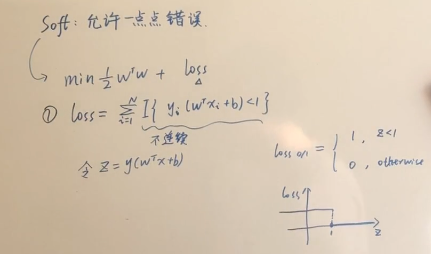 Soft: 允许一点点错误.
min ½ wᵀw + loss
① loss = ∑ᵢ₌₁ᴺ I{ yᵢ (wᵀxᵢ+b) < 1 }
不连续
令 z = y(wᵀx+b)
loss 0/1 = { 1, z<1
0, otherwise
loss
1
z